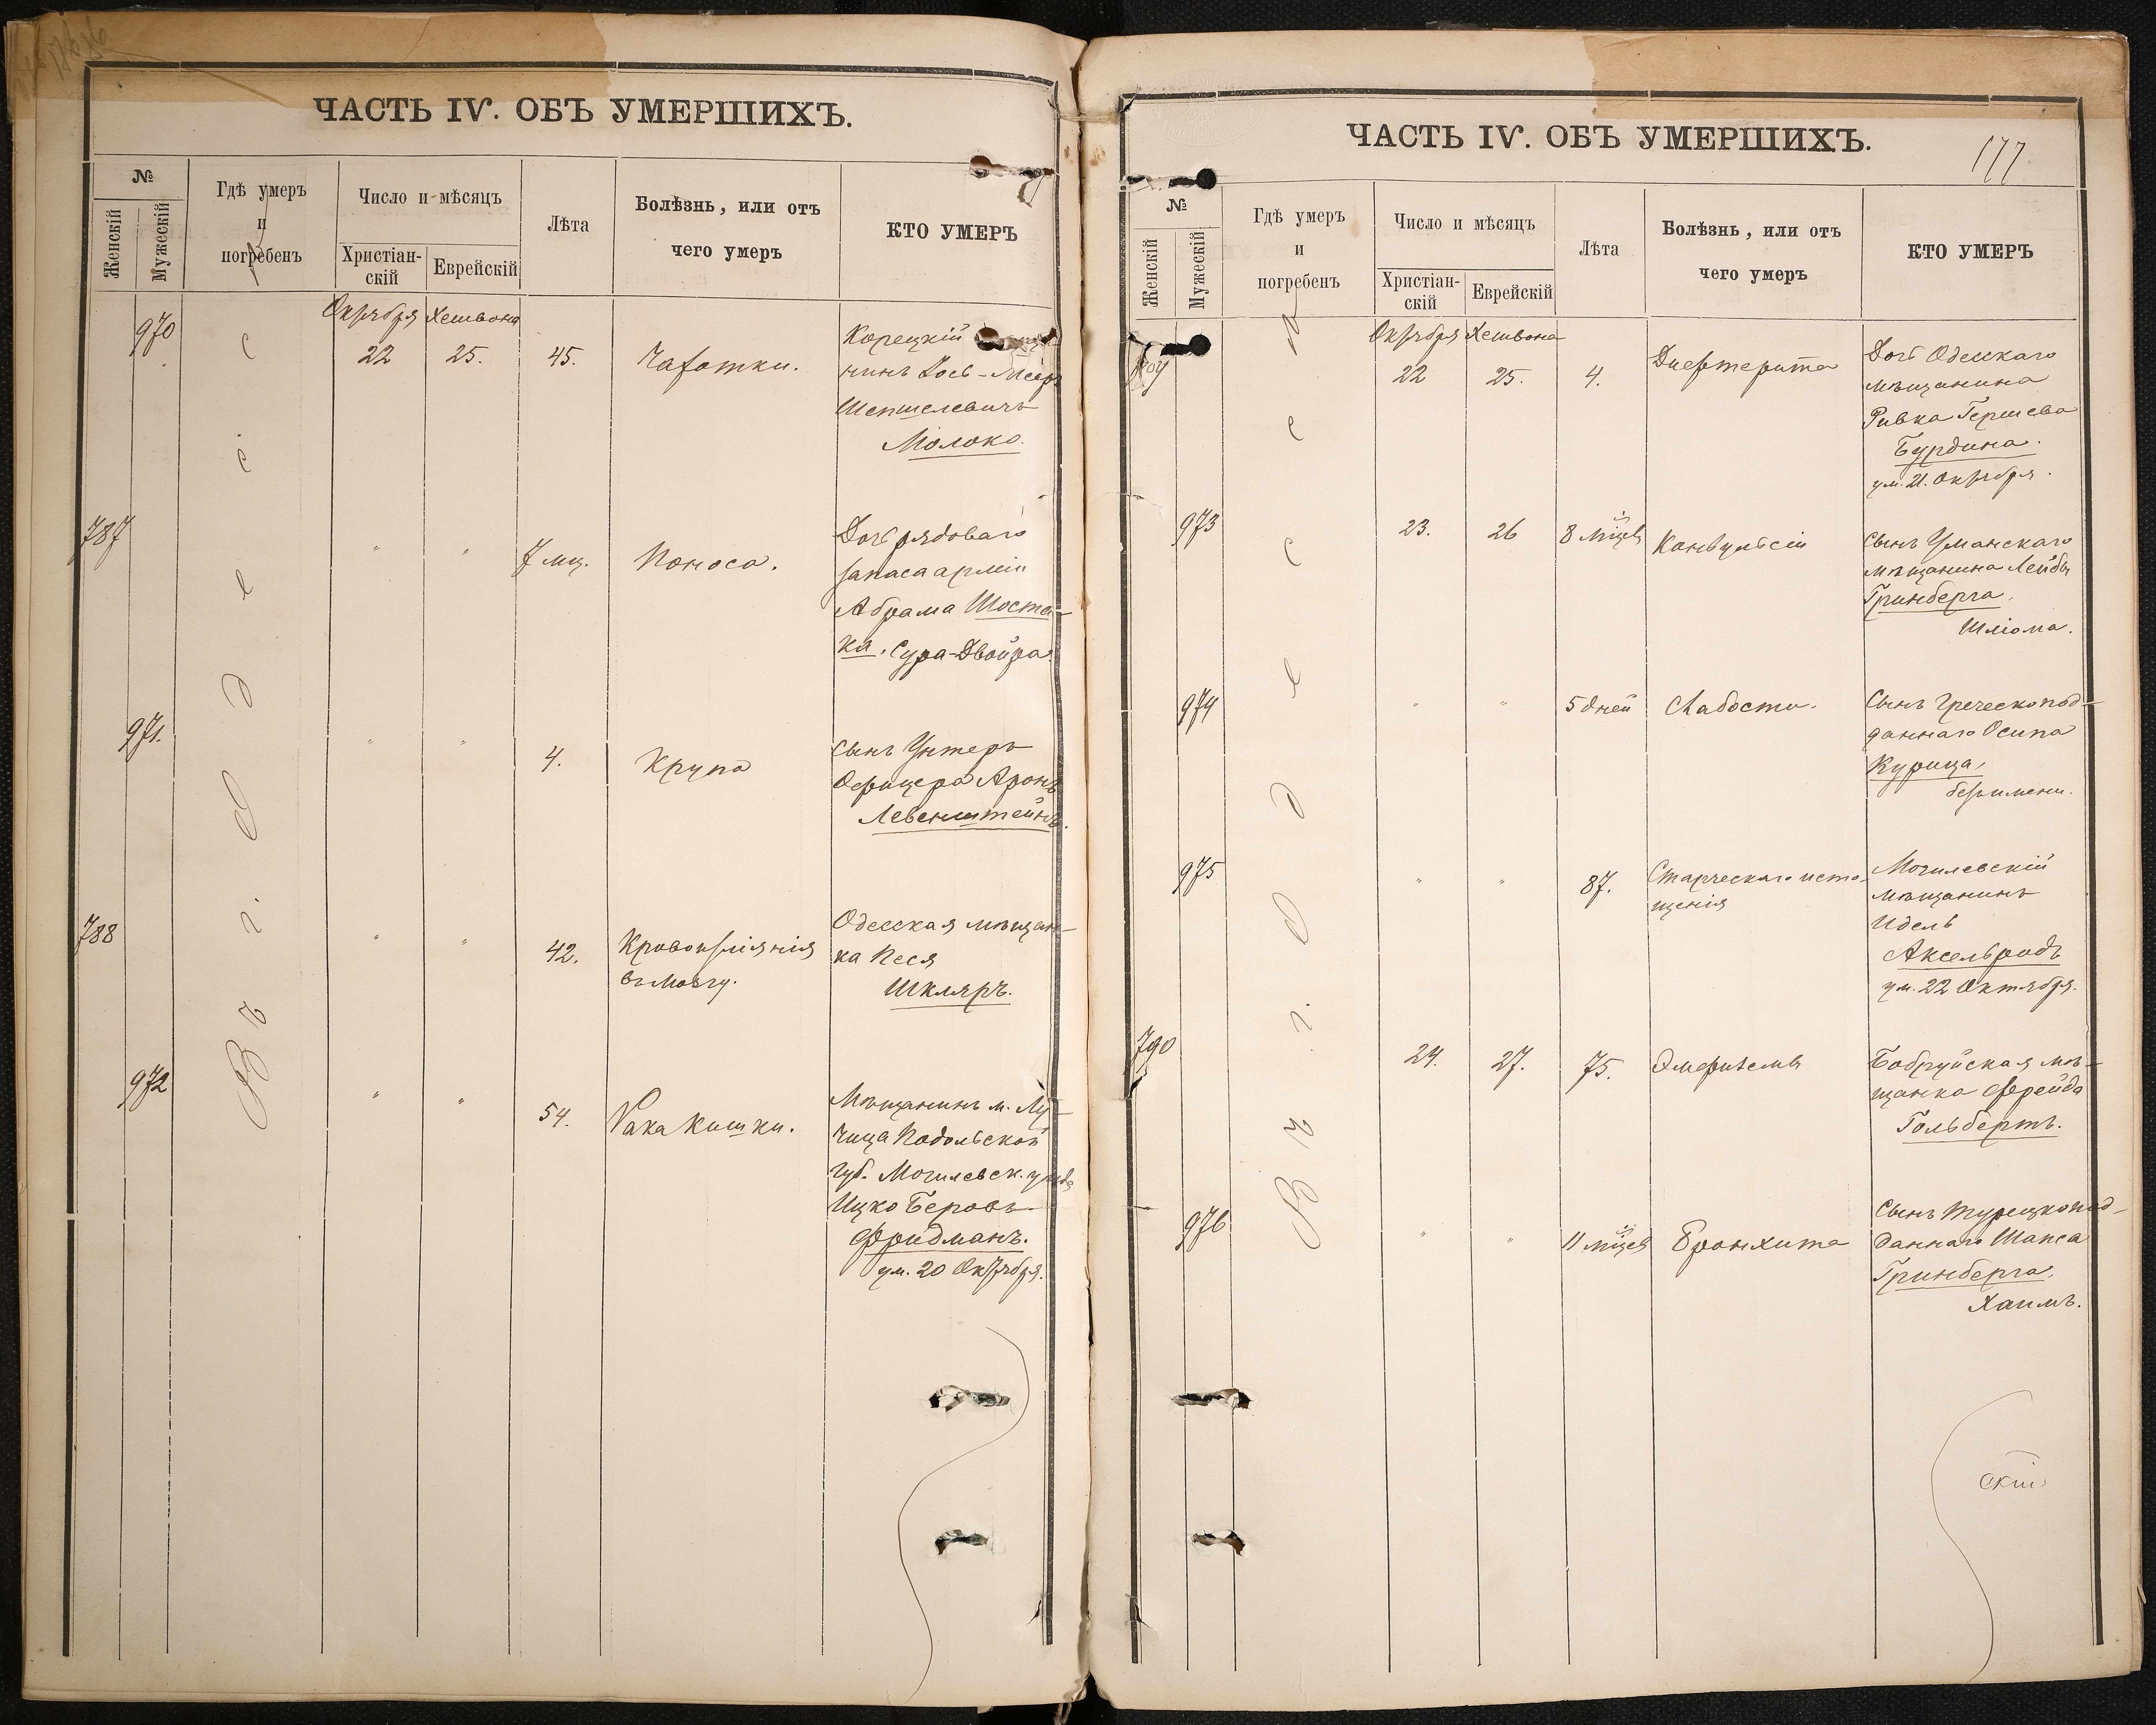 ЧАСТЬ IV. ОБЪ УМЕРШИХЪ.
№
Женскій
Мужескій
Гдѣ умеръ
и
погребенъ
Число и мѣсяцъ
Христіан-
скій
Еврейскій
Лѣта
Болѣзнь, или отъ
чего умеръ
КТО УМЕРЪ
Въ г. Одессѣ
Октября Хешвона
970
22
25.
45.
Чахотки.
Корецкій
нинъ Іось-Меер
Шепшелевичъ
Молоко.
787
"
"
7 мц.
Поноса.
Доч рядоваго
запаса арміи
Абрама Шоста-
ка, Сура-Двойра.
971.
"
"
4.
Крупа
Сынъ Унтеръ
Офицера Аронъ
Левенштейнъ.
788
"
"
42.
Кровоизліянія
въ мозгу.
Одесская мѣщан-
ка Песя
Шкляръ.
972
"
"
54.
Рака кишки.
Мѣщанинъ м. Лу-
чица Подольской
губ. Могилевск. уѣзда
Ицко Беровъ
Фридманъ.
ум. 20 Октября.
ЧАСТЬ IV. ОБЪ УМЕРШИХЪ.
177
№
Женскій
Мужескій
Гдѣ умеръ
и
погребенъ
Число и мѣсяцъ
Христіан-
скій
Еврейскій
Лѣта
Болѣзнь, или отъ
чего умеръ
КТО УМЕРЪ
Въ г. Одессѣ
Октября Хешвона
22
25.
4.
Дифтерита
Доч Одесскаго
мѣщанина
Ривка Гершева
Бурдина.
ум. 21. Октября.
973
23.
26
8 мцевъ
Конвульсіи
Сынъ Уманскаго
мѣщанина Лейбы
Гринберга,
Шлiома.
974
"
"
5 дней
Слабости.
Сынъ Греческопод-
даннаго Осипа
Курица,
безъ имени.
975
"
"
87.
Старческаго исто-
щенія
Могилевскій
мѣщанинъ
Идель
Аксельродъ
ум. 22 Октября.
790
24.
27.
75.
Эмфиземы
Бобруйская мѣ-
щанка Фрейда
Гольбертъ.
976
"
"
11 мцевъ
Бронхита
Сынъ Турецкопод-
даннаго Шапса
Гринберга,
Хаимъ.
скій